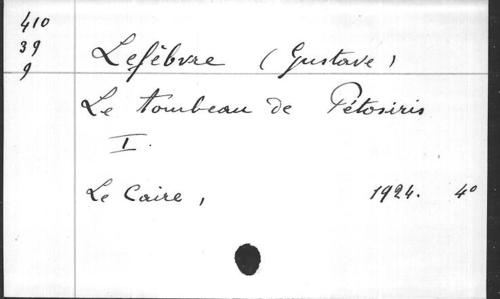 410
39
9
Lefèbvre (Gustave)
Le tombeau de Pétosiris
I.
Le Caire, 1924. 4º